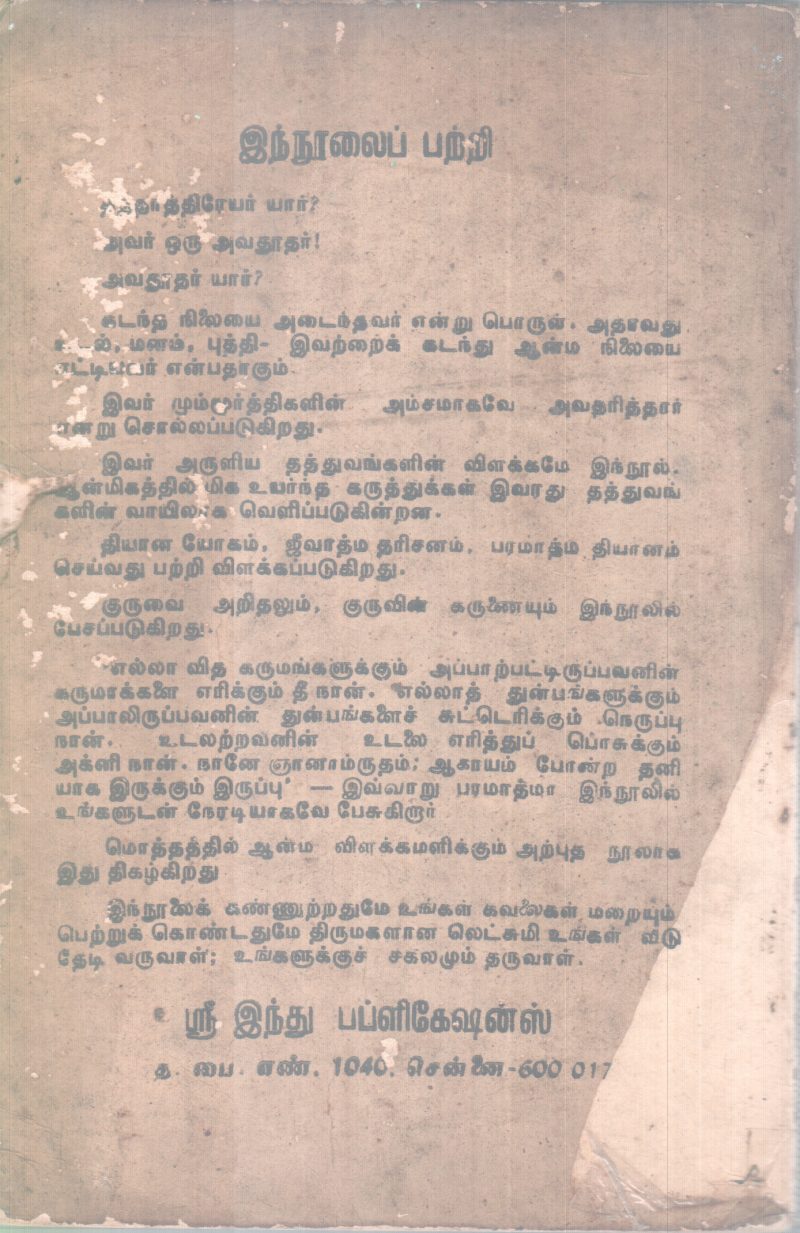 இந்நூலைப் பற்றி
தத்தாத்திரேயர் யார்?
அவர் ஒரு அவதூதர்!
அவதூதர் யார்?
கடந்த நிலையை அடைந்தவர் என்று பொருள். அதாவது
உடல், மனம், புத்தி- இவற்றைக் கடந்து ஆன்ம நிலையை
எட்டியவர் என்பதாகும்.
இவர் மும்மூர்த்திகளின் அம்சமாகவே அவதரித்தார்
என்று சொல்லப்படுகிறது.
இவர் அருளிய தத்துவங்களின் விளக்கமே இந்நூல்.
ஆன்மிகத்தில் மிக உயர்ந்த கருத்துக்கள் இவரது தத்துவங்
களின் வாயிலாக வெளிப்படுகின்றன.
தியான யோகம், ஜீவாத்ம தரிசனம், பரமாத்ம தியானம்
செய்வது பற்றி விளக்கப்படுகிறது.
குருவை அறிதலும், குருவின் கருணையும் இந்நூலில்
பேசப்படுகிறது.
'எல்லா வித கருமங்களுக்கும் அப்பாற்பட்டிருப்பவனின்
கருமாக்களை எரிக்கும் தீ நான். எல்லாத் துன்பங்களுக்கும்
அப்பாலிருப்பவனின் துன்பங்களைச் சுட்டெரிக்கும் நெருப்பு
நான். உடலற்றவனின் உடலை எரித்துப் பொசுக்கும்
அக்னி நான். நானே ஞானாம்ருதம்; ஆகாயம் போன்ற தனி
யாக இருக்கும் இருப்பு' — இவ்வாறு பரமாத்மா இந்நூலில்
உங்களுடன் நேரடியாகவே பேசுகிறார்.
மொத்தத்தில் ஆன்ம விளக்கமளிக்கும் அற்புத நூலாக
இது திகழ்கிறது
இந்நூலைக் கண்ணுற்றதுமே உங்கள் கவலைகள் மறையும்
பெற்றுக் கொண்டதுமே திருமகளான லெட்சுமி உங்கள் வீடு
தேடி வருவாள்; உங்களுக்குச் சகலமும் தருவாள்.
ஸ்ரீ இந்து பப்ளிகேஷன்ஸ்
த. பை. எண். 1040, சென்னை-600 017